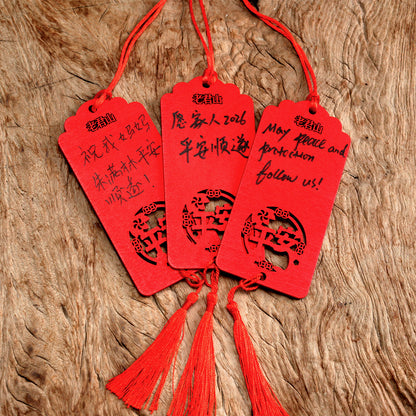 老君山
祝我妈妈
朱满林平安
顺遂!
平安
老君山
愿家人2026
平安顺遂
平安
老君山
May peace and
protection
follow us!
平安